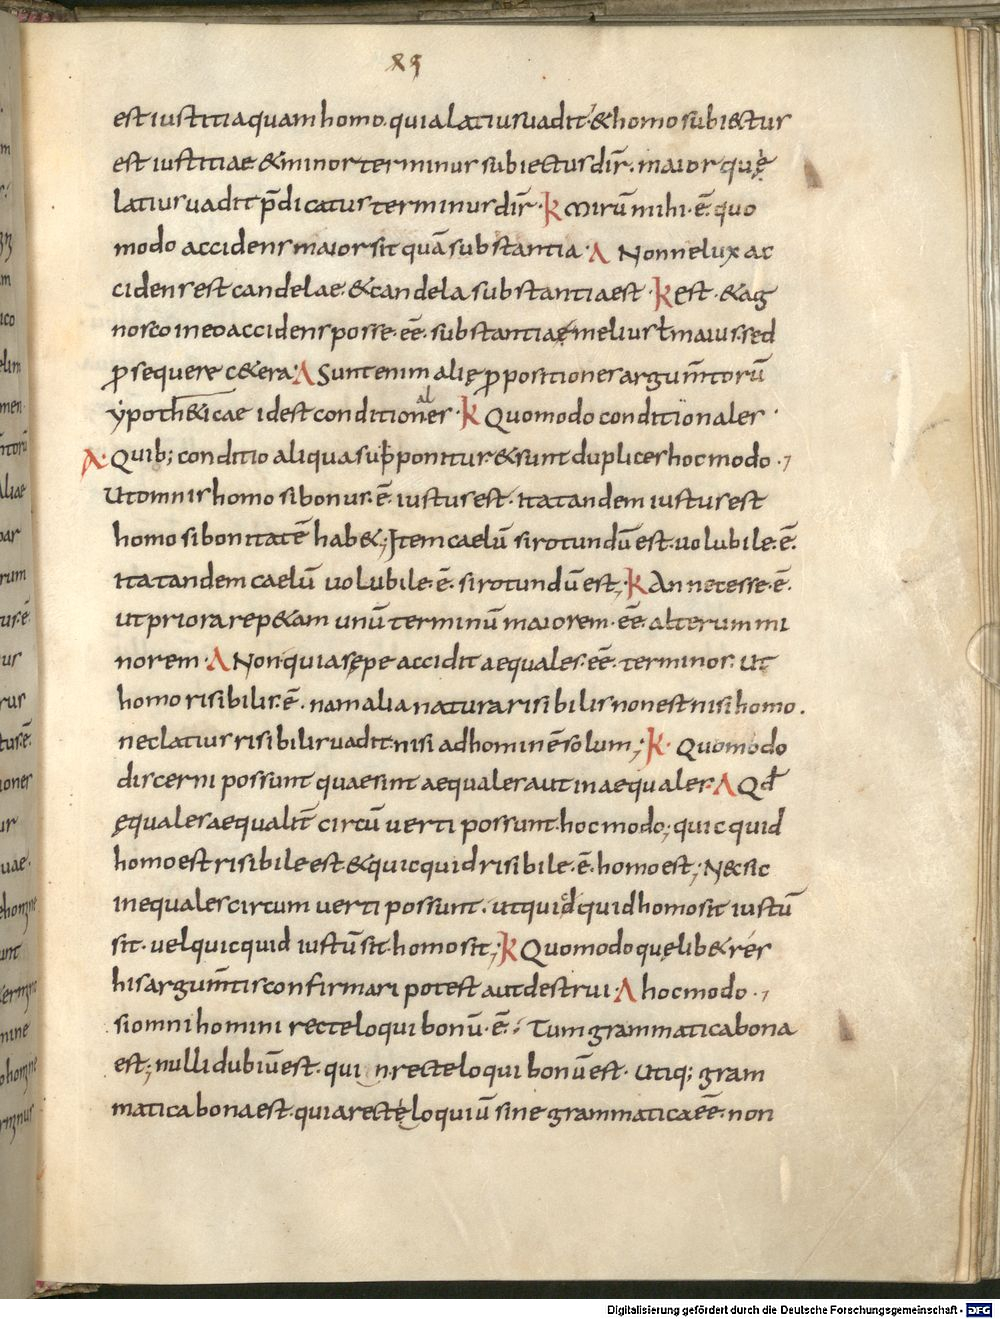 X5
est iustitia quam homo. quia latius uadit. & homo subiectus
est iustitiae & minor terminus subiectus dir̄. maior quę
latius uadit p̄dicatus terminus dir̄. K Mirū mihi .ē. quo
modo accidens maior sit quā substantia. A Nonne lux ac
cidens est candelae. & candela substantia est. K est. & ag
nosco in eo accidens posse .ēē. substantia & melius ł maius. sed
prosequere c&era. A Sunt enim alię propositiones argum̄torū
ypoth&icae id est condition al es. K Quomodo conditionales
A. Quib; conditio aliqua supponitur. & sunt duplices hoc modo.
Ut omnis homo si bonus .ē. iustus est. ita tandem iustus est
homo si bonitatē hab&; Item caelū si rotundū est. uolubile .ē.
ita tandem caelū uolubile .ē. si rotundū est; K An necesse .ē.
ut priora rep&am unū terminū maiorem .ēē. alterum mi
norem. A Non quia sępe accidit aequales .ēē. terminos. ut
homo risibilis .ē. nam alia natura risibilis non est nisi homo.
nec latius risibilis uadit. nisi ad hominē solum; K. Quomodo
discerni possunt quae sint aequales aut inaequales. A Qđ
ęquales aequalit̄ circū uerti possunt. hoc modo; quicquid
homo est risibile est & quicquid risibile .ē. homo est; Nec sic
inequales circum uerti possunt. ut quidquid homo sit iustū
sit. uel quicquid iustū sit. homo sit; K Quomodo quęlib& res
his argum̄tis confirmari potest aut destrui. A hoc modo.
si omni homini recte loqui bonū .ē. Tum grammatica bona
est; nulli dubiū est. qui n recte loqui bonū est. Utiq; gram
matica bona est. quia recte loquiū sine grammatica ēē. non
Digitalisierung gefördert durch die Deutsche Forschungsgemeinschaft - DFG